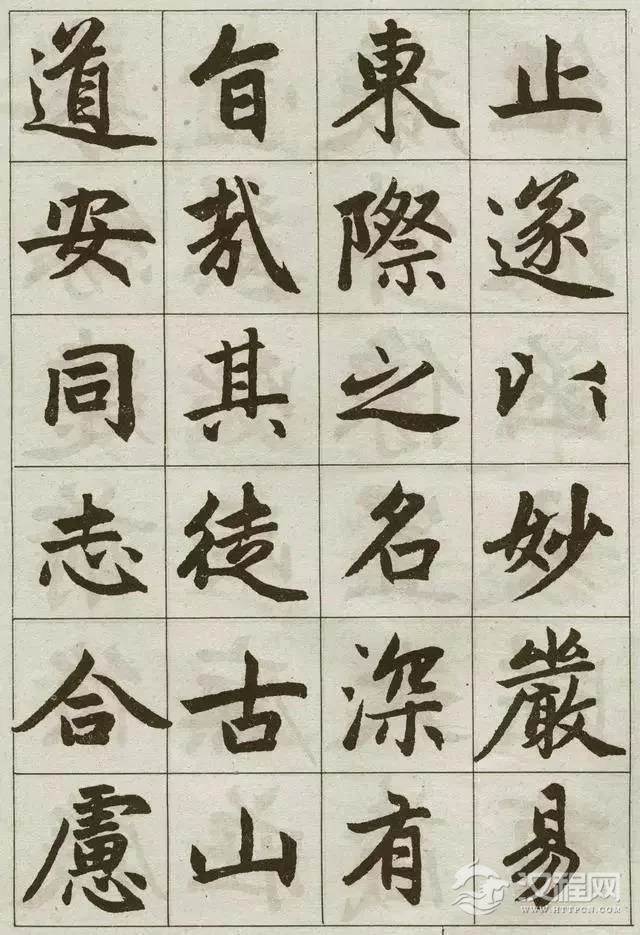 止遂以妙嚴易
東際之名深有
旨哉其徒古山
道安同志合慮
汉程网
WWW.HTTPCN.COM